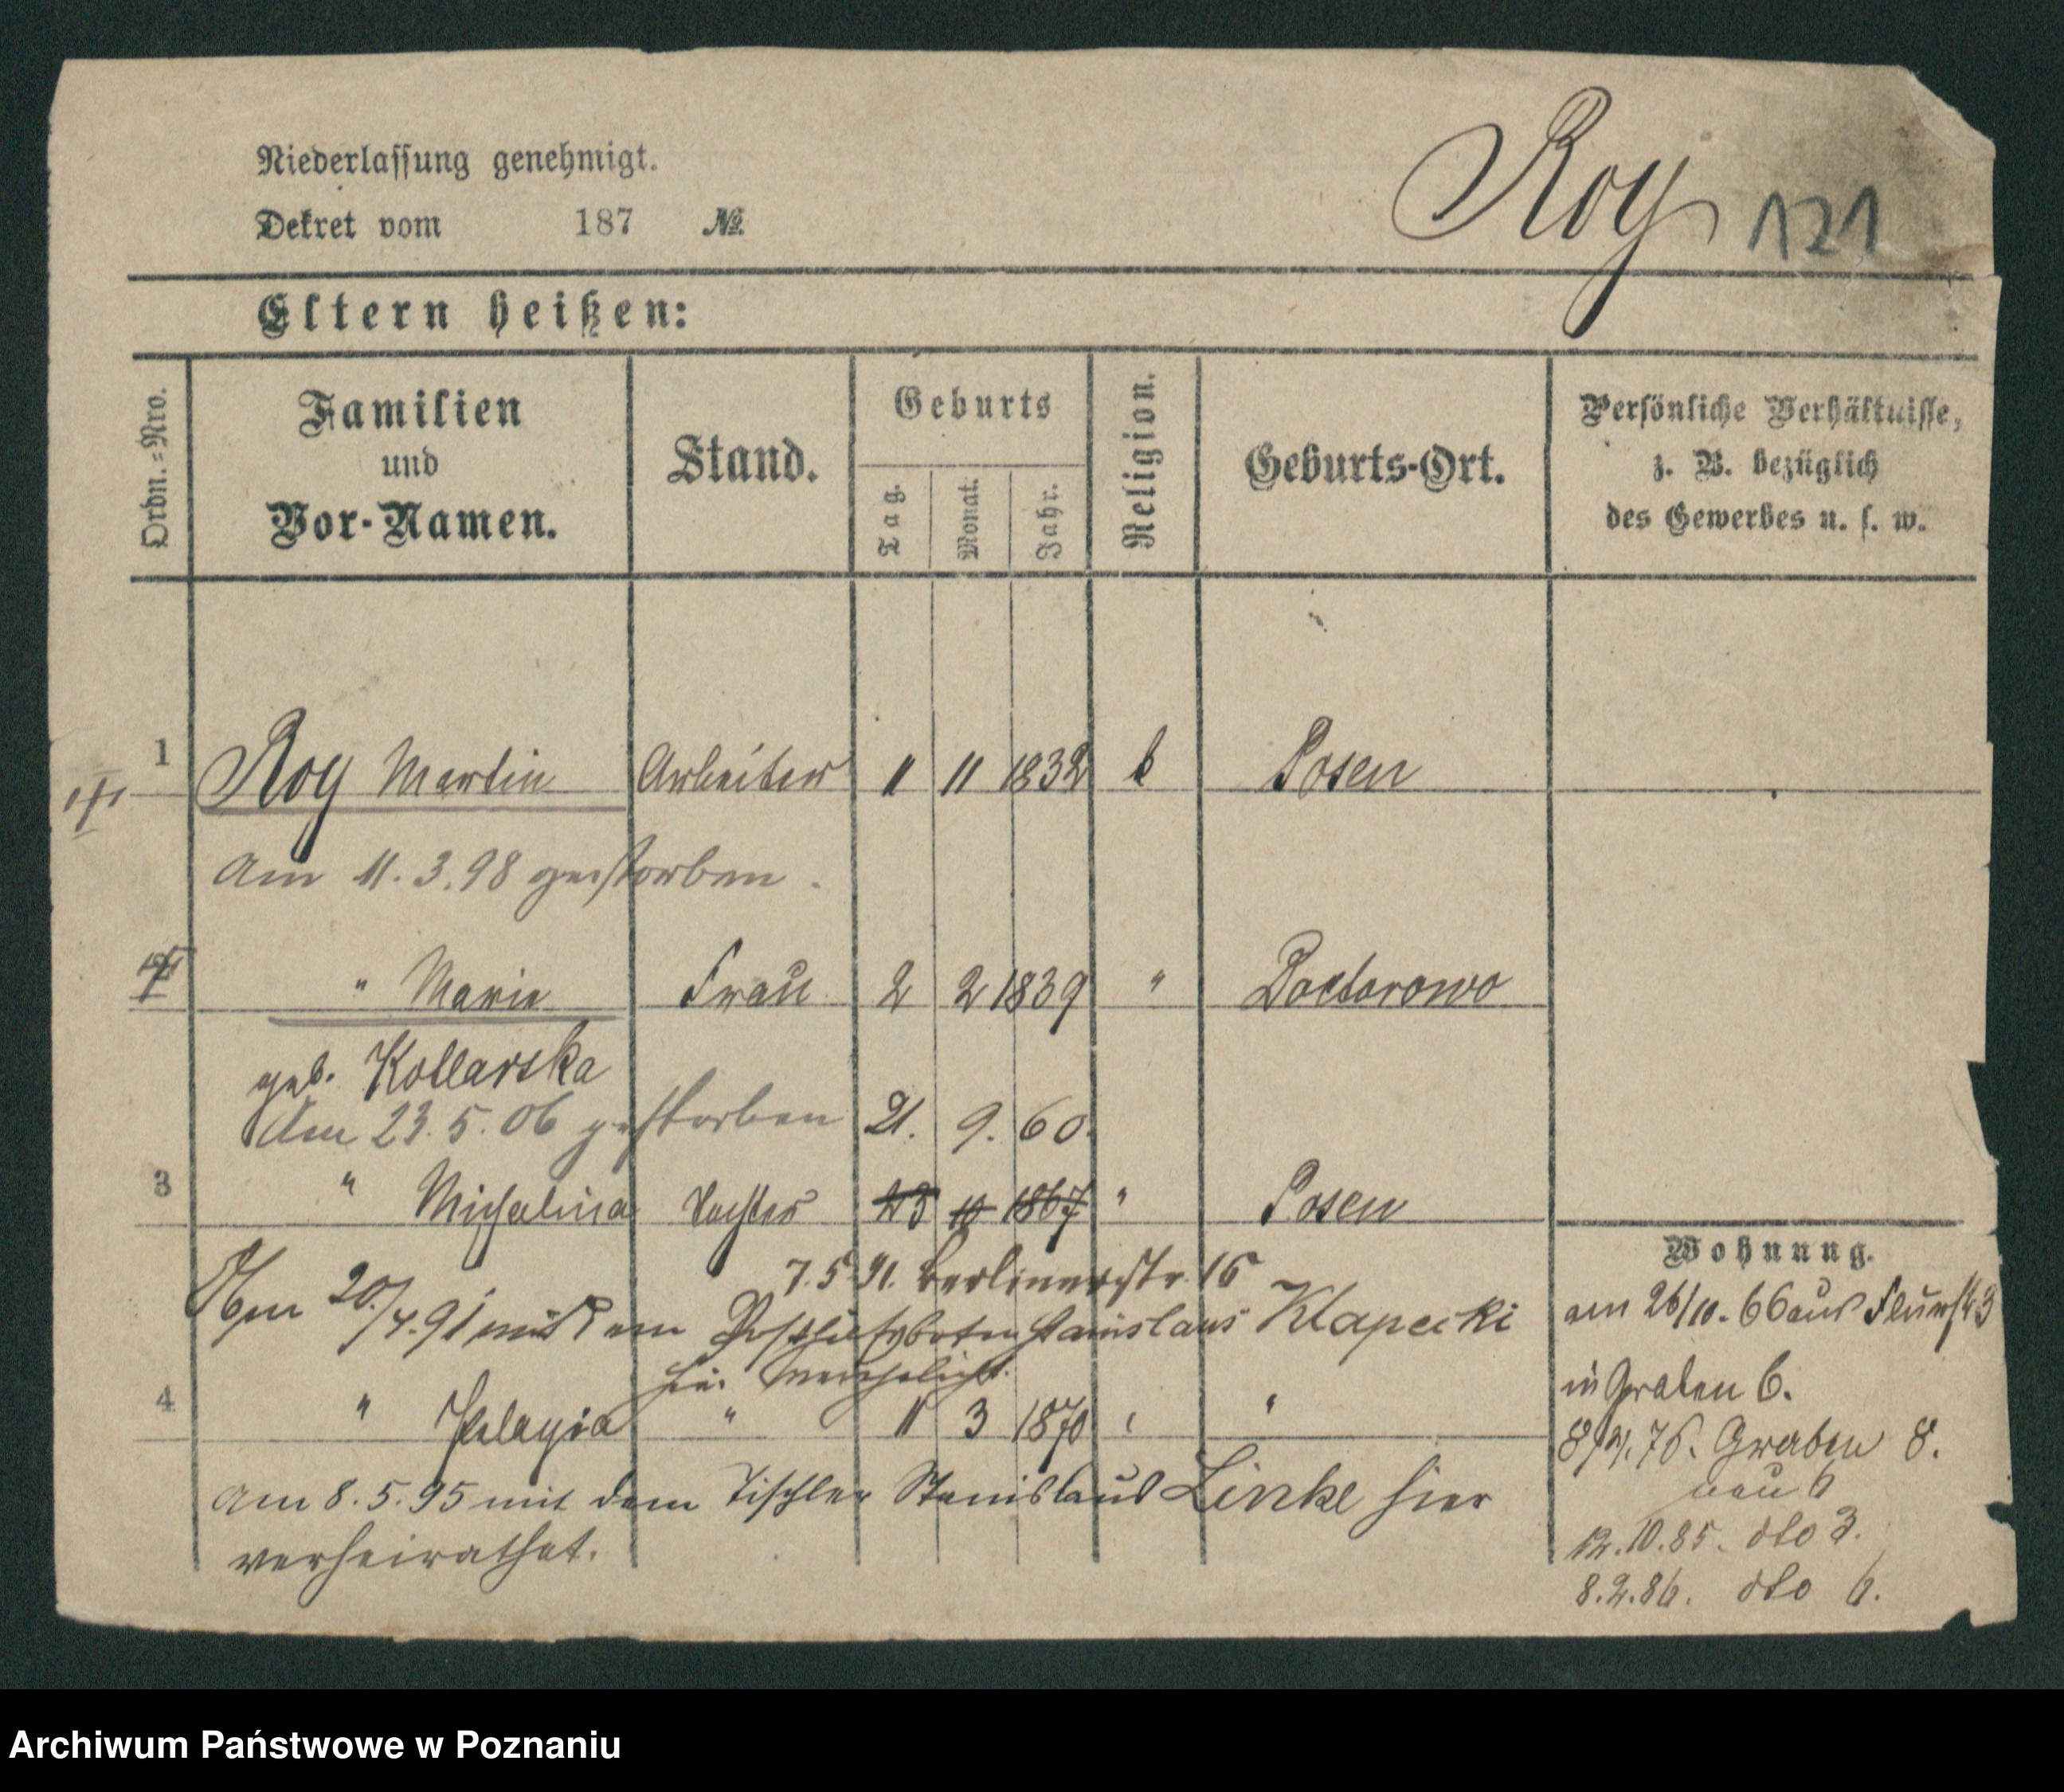 Niederlassung genehmigt.
Dekret vom 187 №
Roy 121
Eltern heißen:
Ordn.-Nro.
Familien
und
Vor-Namen.
Stand.
Geburts
Tag.
Monat.
Jahr.
Religion.
Geburts-Ort.
Persönliche Verhältnisse,
z. B. bezüglich
des Gewerbes u. s. w.
1 Roy Martin Arbeiter 11 11 1832 k Posen
Am 11.3.98 gestorben.
" Marie Frau 2 2 1839 " Doctorowo
geb. Kotlarska
Am 23.5.06 gestorben 21. 9. 60.
3 " Michalina Tochter 23 10 1867 " Posen
7.5.91. Berlinerstr. 16
Am 20./4.91 mit dem Posthilfsboten Stanislaus Klapecki
hier verehelicht.
4 " Pelagia " 11 3 1870 " "
Am 8.5.95 mit dem Tischler Stanislaus Linke hier
verheirathet.
Wohnung.
am 26/10.66 aus
in Graben 6.
76. Graben 8.
neu 6
12.10.85. dto 3.
8.2.86. dto 6.
Archiwum Państwowe w Poznaniu